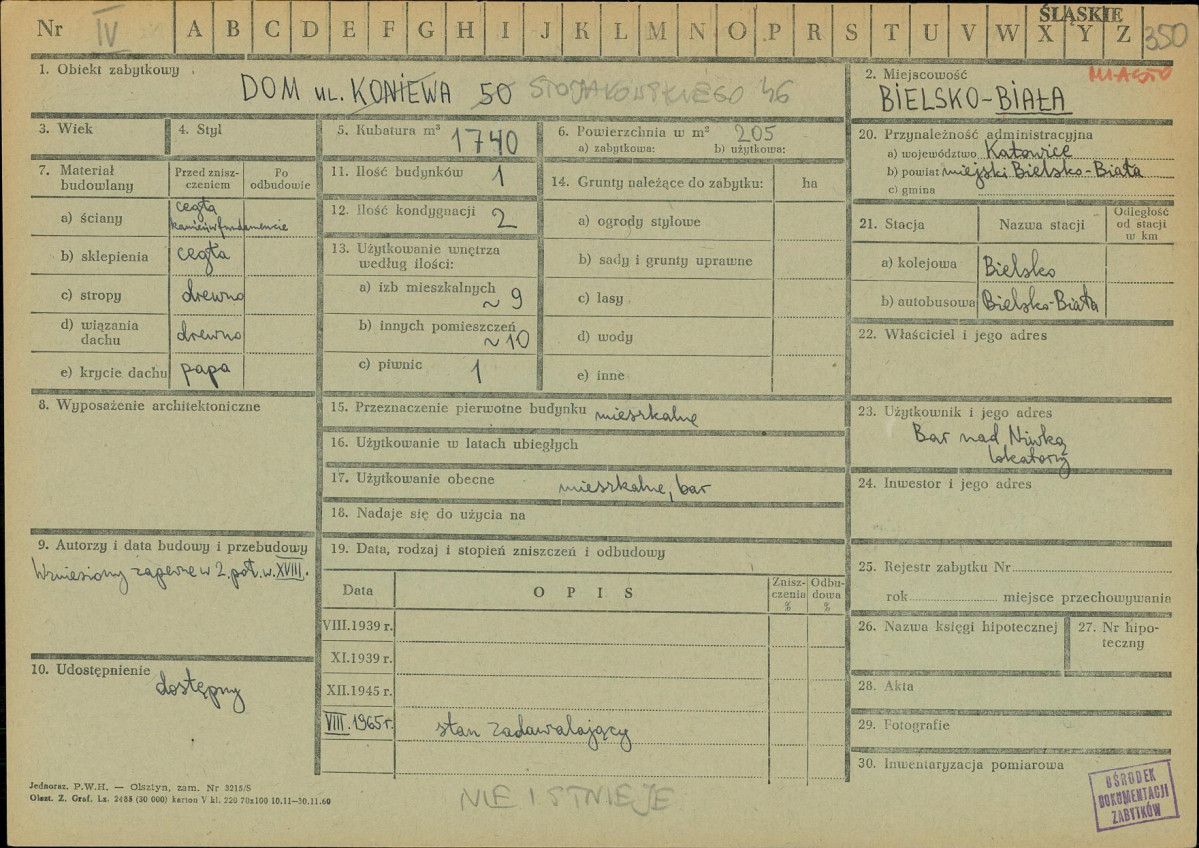 Nr IV A B C D E F G H I J K L M N O P R S T U V W X Y Z 350
ŚLĄSKIE
1. Obiekt zabytkowy
DOM ul. KONIEWA 50 STOJAŁOWSKIEGO 46
2. Miejscowość MIASTO
BIELSKO-BIAŁA
3. Wiek
4. Styl
5. Kubatura m³ 1740
6. Powierzchnia w m² 205
a) zabytkowa: b) użytkowa:
20. Przynależność administracyjna
a) województwo Katowice
b) powiat miejski Bielsko-Biała
c) gmina
7. Materiał budowlany
Przed zniszczeniem
Po odbudowie
a) ściany cegła
kamień w fundamencie
b) sklepienia cegła
c) stropy drewno
d) wiązania dachu drewno
e) krycie dachu papa
11. Ilość budynków 1
12. Ilość kondygnacji 2
13. Użytkowanie wnętrza
według ilości:
a) izb mieszkalnych
~ 9
b) innych pomieszczeń
~ 10
c) piwnic 1
14. Grunty należące do zabytku: ha
a) ogrody stylowe
b) sady i grunty uprawne
c) lasy
d) wody
e) inne
21. Stacja Nazwa stacji Odległość od stacji w km
a) kolejowa Bielsko
b) autobusowa Bielsko-Biała
22. Właściciel i jego adres
8. Wyposażenie architektoniczne
15. Przeznaczenie pierwotne budynku mieszkalne
16. Użytkowanie w latach ubiegłych
17. Użytkowanie obecne mieszkalne, bar
18. Nadaje się do użycia na
23. Użytkownik i jego adres
Bar nad Niwką
lokatorzy
24. Inwestor i jego adres
9. Autorzy i data budowy i przebudowy
Wzniesiony zapewne w 2. poł. w. XVIII.
10. Udostępnienie
dostępny
19. Data, rodzaj i stopień zniszczeń i odbudowy
Data OPIS Zniszczenia % Odbudowa %
VIII.1939 r.
XI.1939 r.
XII.1945 r.
VIII.1965 r. stan zadawalający
25. Rejestr zabytku Nr
rok miejsce przechowywania
26. Nazwa księgi hipotecznej
27. Nr hipoteczny
28. Akta
29. Fotografie
30. Inwentaryzacja pomiarowa
Jednoraz. P.W.H. — Olsztyn, zam. Nr 3215/S
Olszt. Z. Graf. Lz. 2485 (30 000) karton V kl. 220 70x100 10.11—30.11.60
NIE ISTNIEJE
OŚRODEK
DOKUMENTACJI
ZABYTKÓW